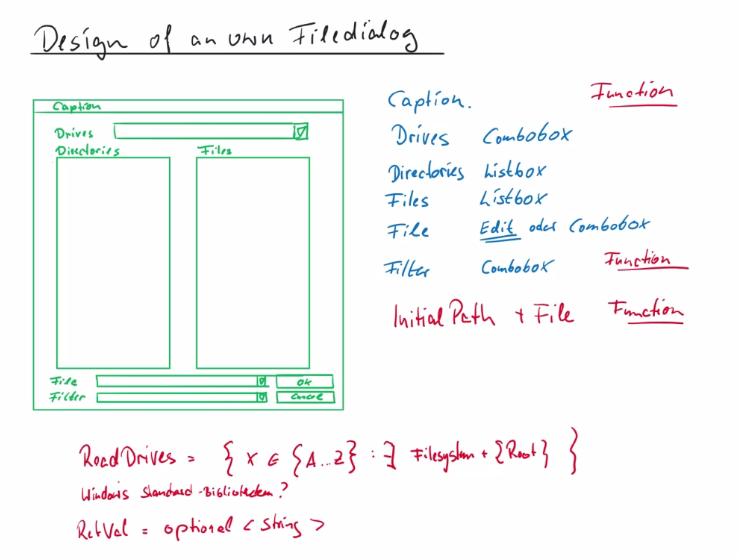 Design of an own Filedialog
Caption
Drives
Directories Files
File OK
Filter Cancel
Caption. Function
Drives Combobox
Directories Listbox
Files Listbox
File Edit oder Combobox
Filter Combobox Function
Initial Path + File Function
ReadDrives = { x ∈ {A...Z} : ∃ Filesystem + {Root} }
Windows Standard-Bibliotheken?
RetVal = optional < string >